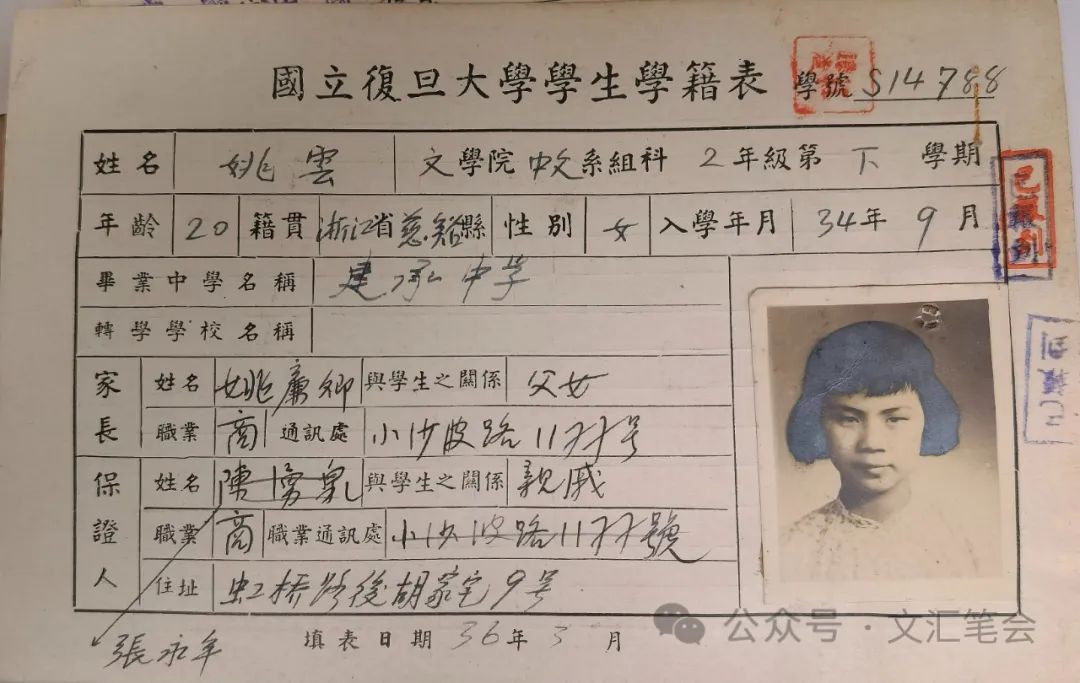 國立復旦大學學生學籍表 學號 S14788
姓名 姚雲 文學院中文系組科 2年級第下學期
年齡 20 籍貫 浙江省慈谿縣 性別 女 入學年月 34年9月
畢業中學名稱 建承中学
轉學學校名稱
家長 姓名 姚廉卿 與學生之關係 父女
職業 商 通訊處 小沙渡路1177号
保證人 姓名 陳 與學生之關係 親戚
職業 商 職業通訊處 小沙渡路1177號
住址 虹桥路後胡家宅9号
張永年 填表日期 36年3月
已報到
已報到
公众号·文汇笔会